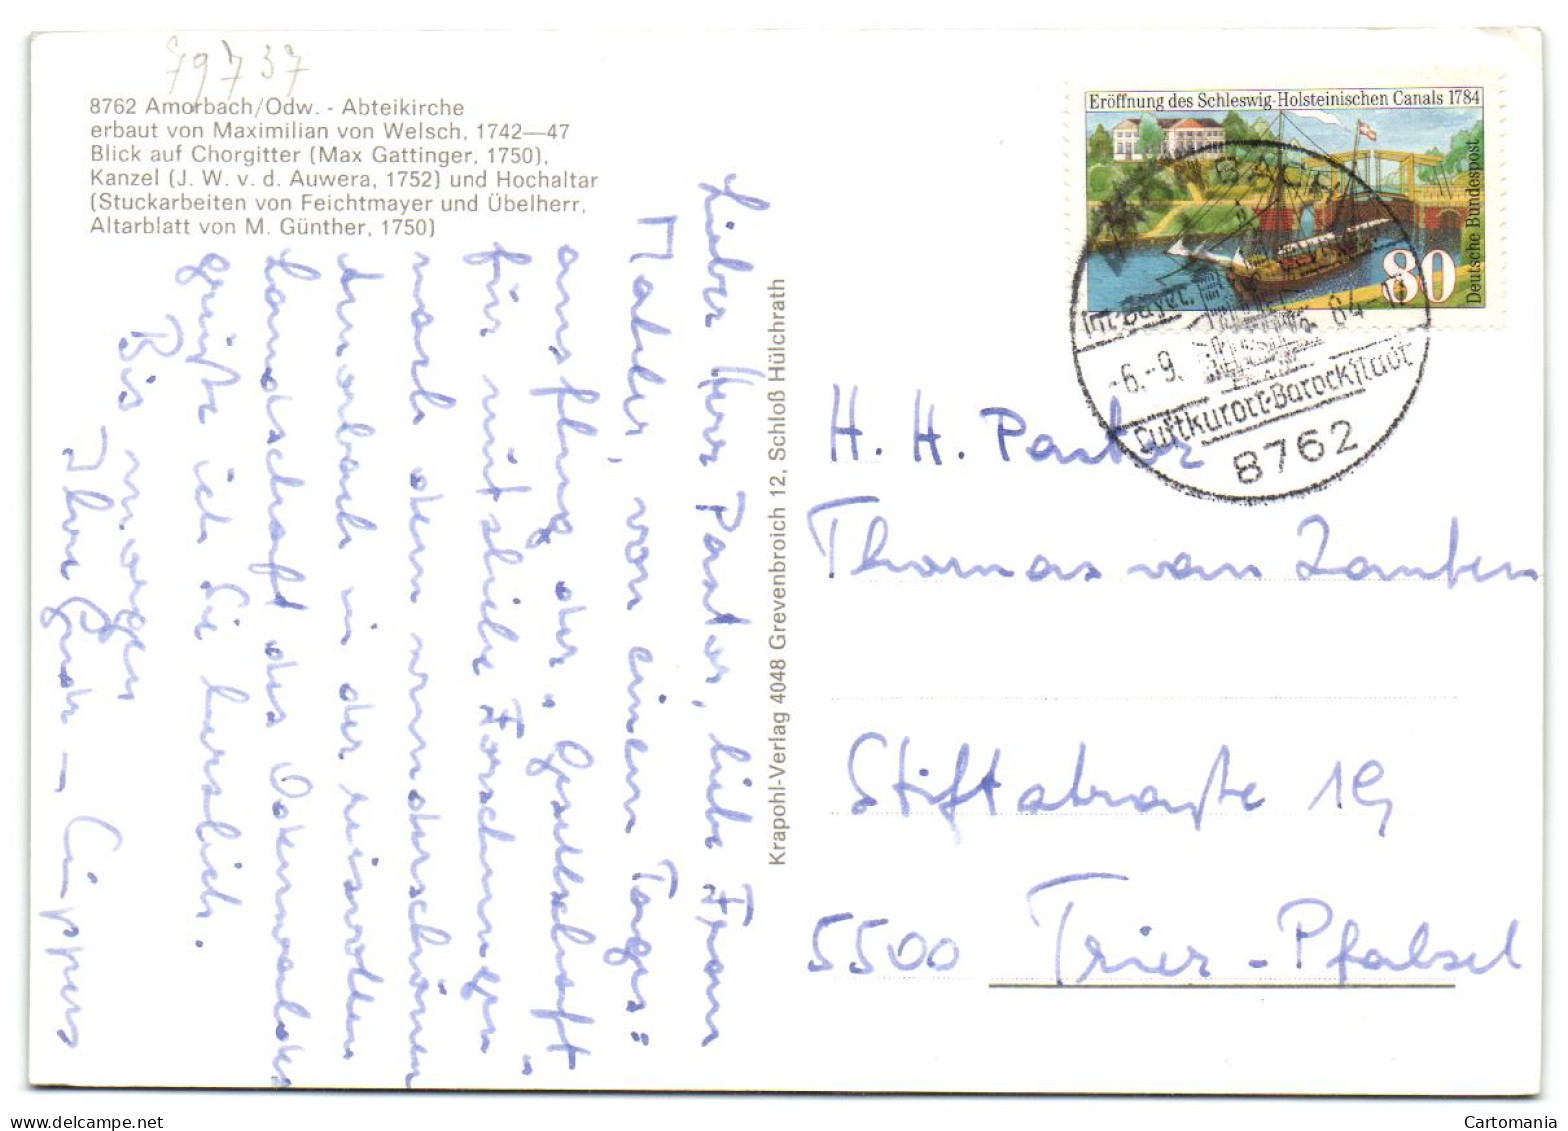 79737
8762 Amorbach/Odw. - Abteikirche
erbaut von Maximilian von Welsch, 1742—47
Blick auf Chorgitter (Max Gattinger, 1750),
Kanzel (J. W. v. d. Auwera, 1752) und Hochaltar
(Stuckarbeiten von Feichtmayer und Übelherr,
Altarblatt von M. Günther, 1750)
Lieber Herr Pastor, liebe Frau
Mater, von einem Tages=
ausflug der „Gesellschaft
für nützliche Forschungen"
nach dem wunderschönen
Amorbach in der reizvollen
Landschaft des Odenwaldes
grüße ich Sie herzlich.
Bis morgen
Ihre
Cüppers
Krapohl-Verlag 4048 Grevenbroich 12, Schloß Hülchrath
Eröffnung des Schleswig-Holsteinischen Canals 1784
Deutsche Bundespost
80
Luftkurort-Barockstadt
-6.-9.
84-
8762
H. H. Pastor
Thomas van Zanten
Stiftstraße 19
5500 Trier - Pfalzel
Cartomania